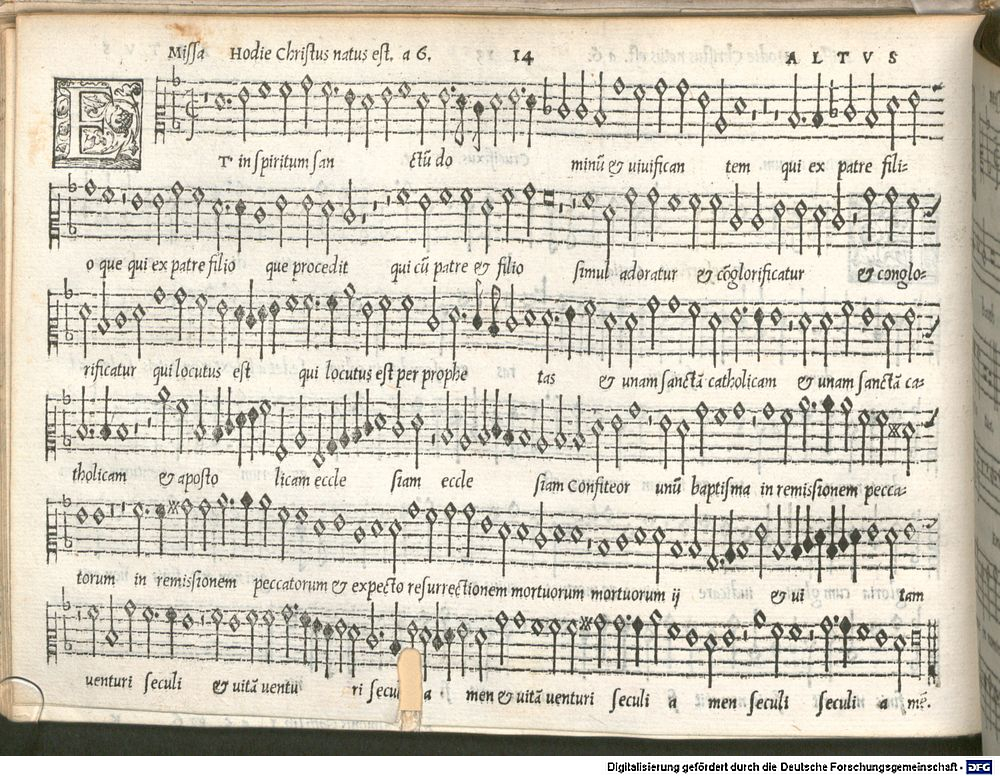 Missa Hodie Christus natus est. a 6. 14 ALTVS
ET in spiritum san ctū do minū & uiuifican tem qui ex patre fili-
o que qui ex patre filio que procedit qui cū patre & filio simul adoratur & cōglorificatur & conglo-
rificatur qui locutus est qui locutus est per prophe tas & unam sanctā catholicam & unam sanctā ca-
tholicam & aposto licam eccle siam eccle siam Confiteor unū baptisma in remissionem pecca-
torum in remissionem peccatorum & expecto resurrectionem mortuorum mortuorum ij & ui tam
uenturi seculi & uitā uentu ri secu a men & uitā uenturi seculi a men seculi seculi a mē.
Digitalisierung gefördert durch die Deutsche Forschungsgemeinschaft - DFG